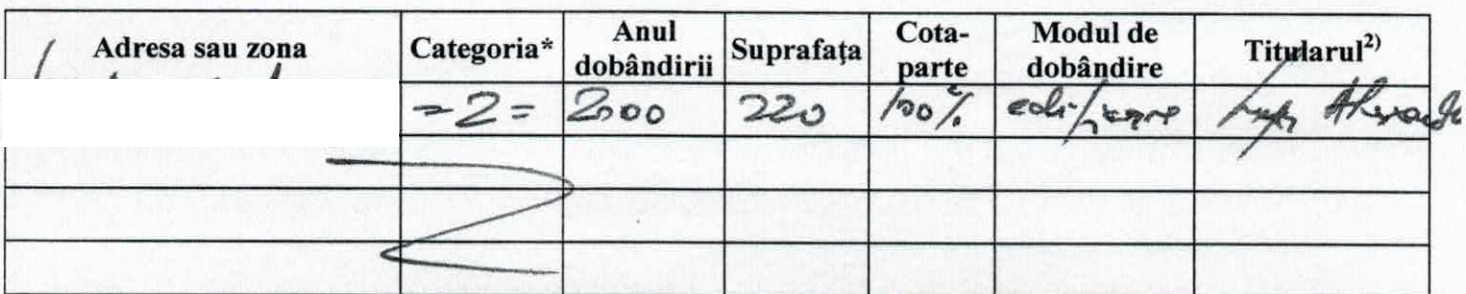 Adresa sau zona Categoria* Anul dobândirii Suprafața Cota-parte Modul de dobândire Titularul2)
=2= 2000 220 100% edificare